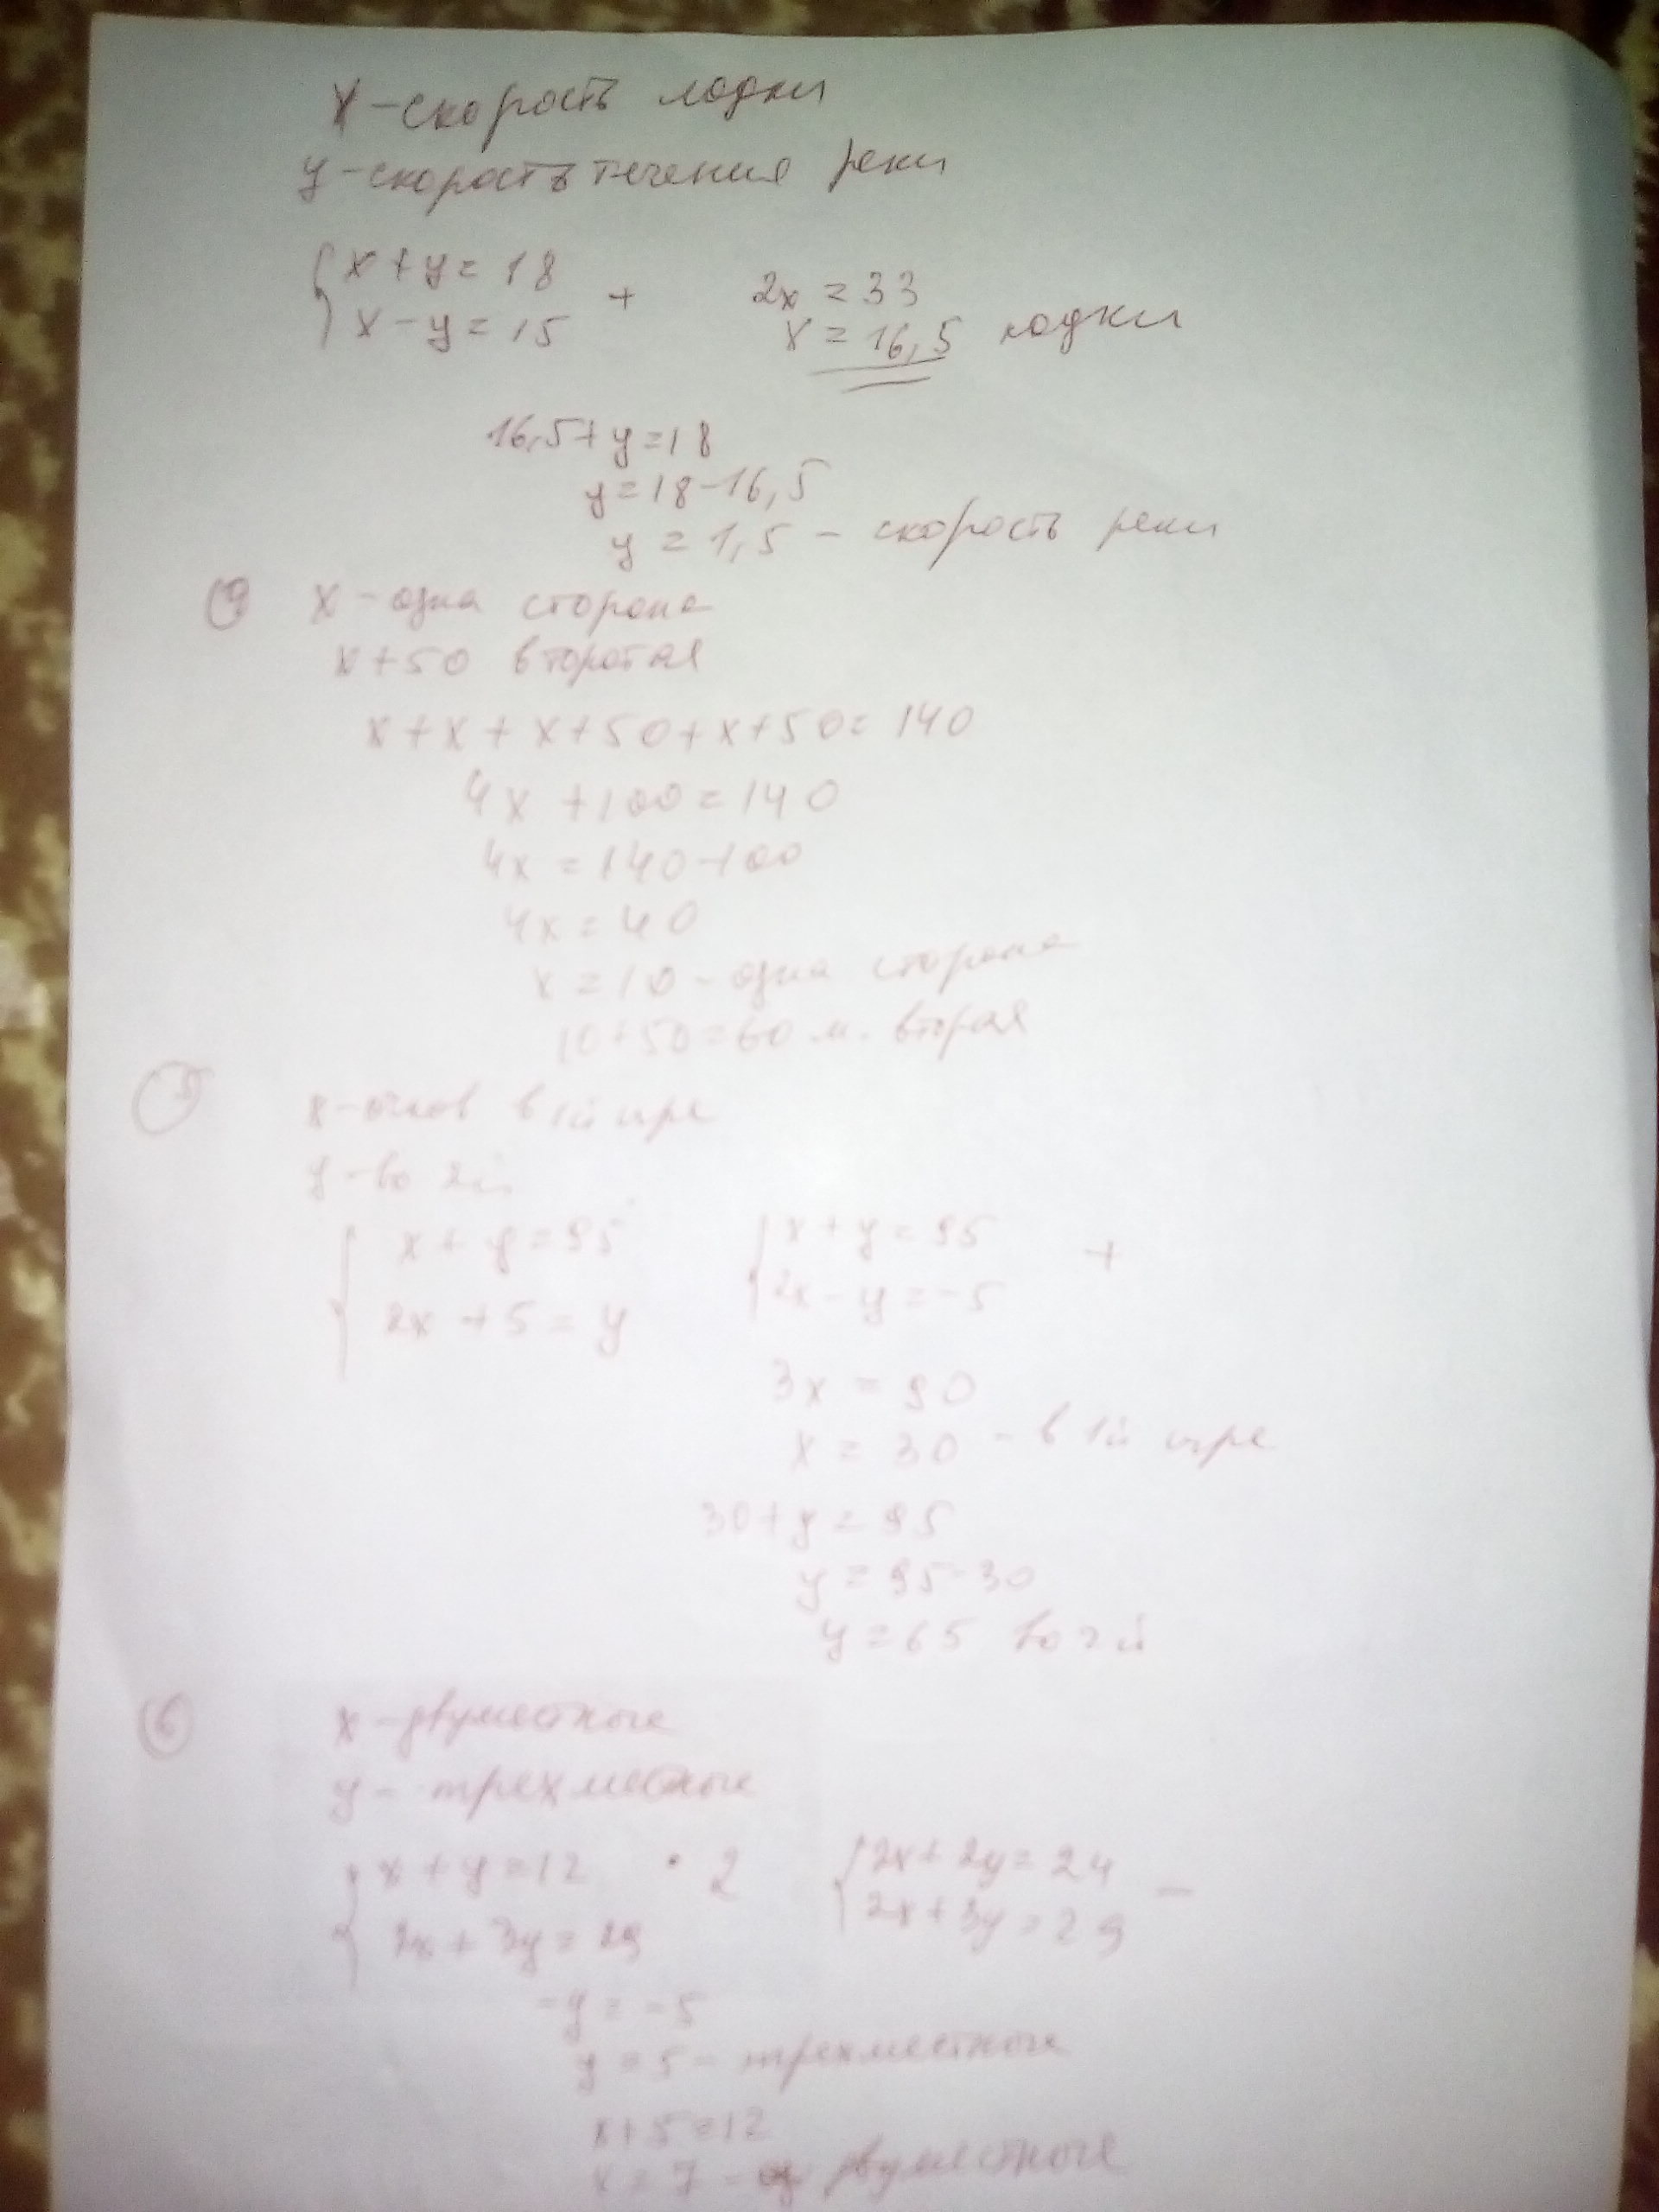 x-скорость лодки
y-скорость течения реки
{ x+y=18
x-y=15 + 2x=33
x=16,5 лодки
16,5+y=18
y=18-16,5
y=1,5 - скорость реки
x-одна сторона
x+50 вторая
x+x+x+50+x+50=140
4x+100=140
4x=140-100
4x=40
x=10-одна сторона
10+50=60 м. вторая
x-очков в 1й игре
y-во 2й
{ x+y=95 { x+y=95 +
2x+5=y 2x-y=-5
3x=90
x=30 - в 1й игре
30+y=95
y=95-30
y=65 во 2й
(6) x-двуместные
y-трехместные
{ x+y=12 · 2 { 2x+2y=24 -
2x+3y=29 2x+3y=29
-y=-5
y=5-трехместные
x+5=12
x=7- двуместные